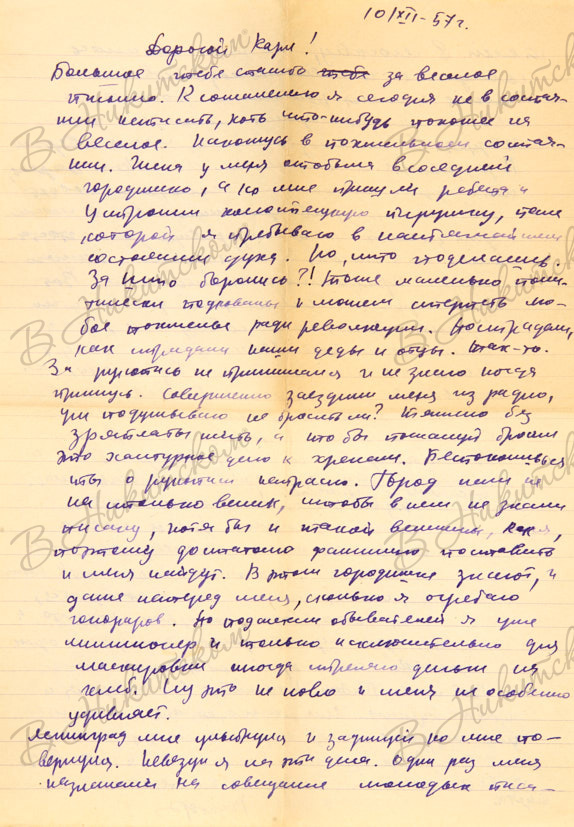 10/XII-57 г.
Дорогой Карл!
Большое тебе спасибо тебе за веселое
письмо. К сожалению я сегодня не в состоя-
нии написать, хоть что-нибудь похожее на
веселое. Нахожусь в похмельном состоя-
нии. Жена у меня отбыла в соседний
городишко, а ко мне пришли ребята и
устроили холостяцкую пирушку, после
которой я пребываю в наипаскуднейшем
состоянии духа. Но, что поделаешь.
За что боролись?! Тоже маленько поли-
тически подкованы и можем стерпеть лю-
бое похмелье ради революции. Пострадаем,
как страдали наши деды и отцы. Так-то.
За рукопись не принимался и не знаю когда
примусь. Совершенно заездили меня из радио,
уж подумываю не бросить ли? Тяжело без
зарплаты жить, а то бы пожалуй бросил
это халтурное дело к хренам. Беспокоишься
ты о рукописи напрасно. Город наш не
настолько велик, чтобы в нем не знали
писаку, хотя бы и такой величины, как я,
поэтому достаточно фамилию поставить
и меня найдут. В этом городишке знают, и
даже наперед меня, сколько я огребаю
гонораров. По подсчетам обывателей я уже
миллионер и только исключительно для
маскировки иногда стреляю деньги на
хлеб. Ну это не ново и меня не особенно
удивляет.
Ленинград мне улыбнулся и задницей ко мне по-
вернулся. Невезуч я на эти дела. Один раз меня
назначали на совещание молодых писа-
В. Никитском